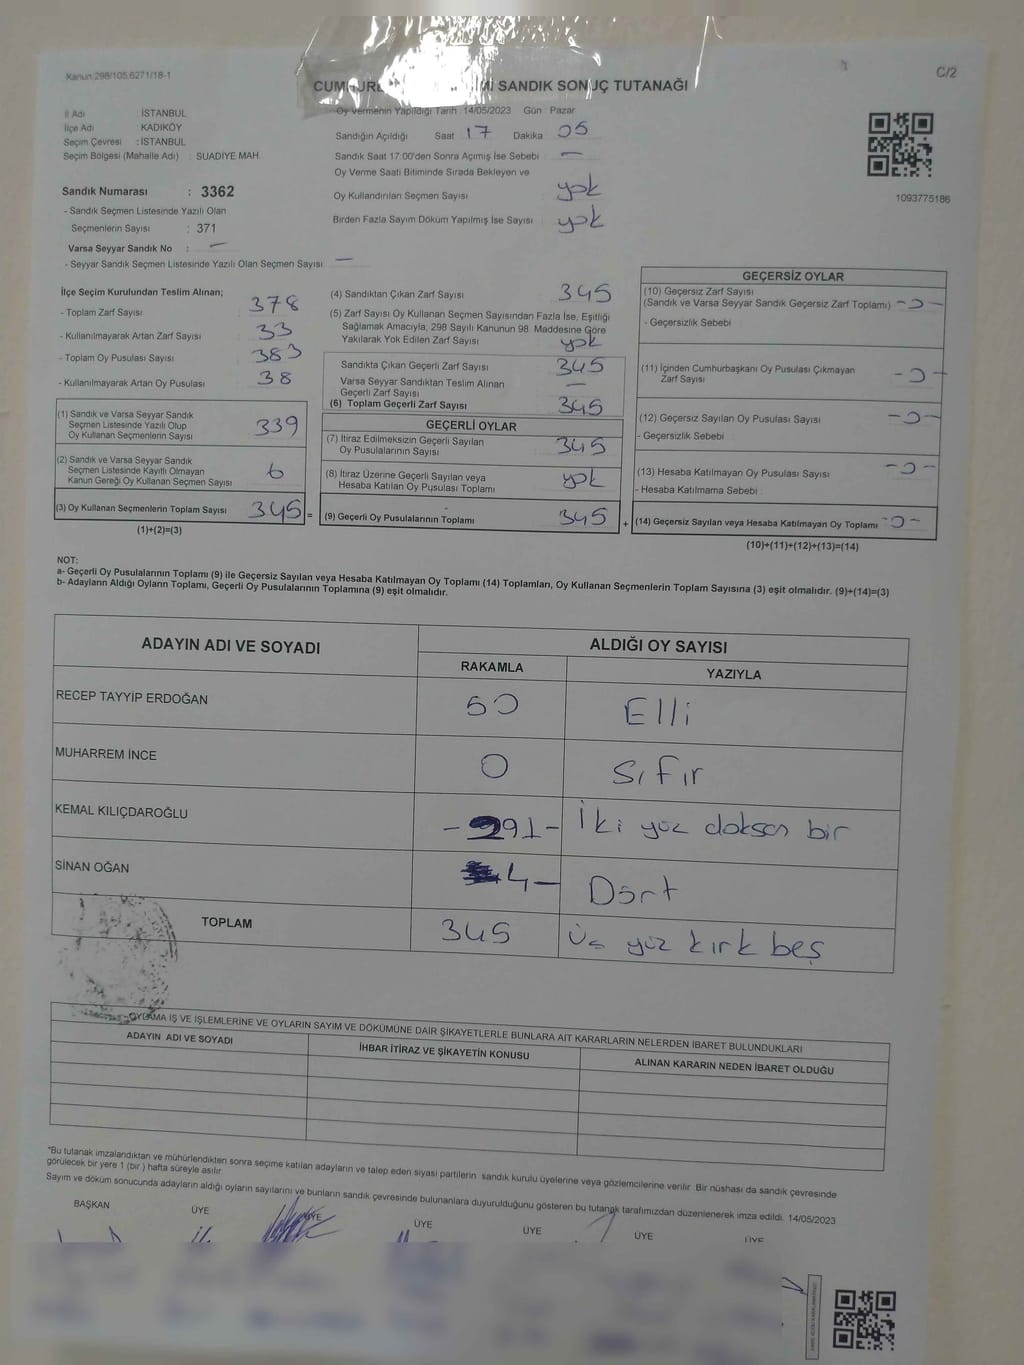 Kanun:298/105,6271/18-1
C/2
SANDIK SONUÇ TUTANAĞI
İl Adı İSTANBUL
İlçe Adı KADIKÖY
Seçim Çevresi : İSTANBUL
Seçim Bölgesi (Mahalle Adı) : SUADİYE MAH.
Oy Vermenin Yapıldığı Tarih 14/05/2023 Gün Pazar
Sandığın Açıldığı Saat 17 Dakika 05
Sandık Saat 17:00'den Sonra Açılmış İse Sebebi : —
Oy Verme Saati Bitiminde Sırada Bekleyen ve
Oy Kullandırılan Seçmen Sayısı yok
Birden Fazla Sayım Döküm Yapılmış İse Sayısı yok
1093775186
Sandık Numarası : 3362
- Sandık Seçmen Listesinde Yazılı Olan
Seçmenlerin Sayısı : 371
Varsa Seyyar Sandık No : —
- Seyyar Sandık Seçmen Listesinde Yazılı Olan Seçmen Sayısı: —
İlçe Seçim Kurulundan Teslim Alınan;
- Toplam Zarf Sayısı 378
- Kullanılmayarak Artan Zarf Sayısı 33
- Toplam Oy Pusulası Sayısı 383
- Kullanılmayarak Artan Oy Pusulası 38
(1) Sandık ve Varsa Seyyar Sandık
Seçmen Listesinde Yazılı Olup
Oy Kullanan Seçmenlerin Sayısı 339
(2) Sandık ve Varsa Seyyar Sandık
Seçmen Listesinde Kayıtlı Olmayan
Kanun Gereği Oy Kullanan Seçmen Sayısı 6
(3) Oy Kullanan Seçmenlerin Toplam Sayısı 345 =
(1)+(2)=(3)
(4) Sandıktan Çıkan Zarf Sayısı 345
(5) Zarf Sayısı Oy Kullanan Seçmen Sayısından Fazla İse, Eşitliği
Sağlamak Amacıyla, 298 Sayılı Kanunun 98. Maddesine Göre
Yakılarak Yok Edilen Zarf Sayısı yok
Sandıkta Çıkan Geçerli Zarf Sayısı 345
Varsa Seyyar Sandıktan Teslim Alınan
Geçerli Zarf Sayısı —
(6) Toplam Geçerli Zarf Sayısı 345
GEÇERLİ OYLAR
(7) İtiraz Edilmeksizin Geçerli Sayılan
Oy Pusulalarının Sayısı 345
(8) İtiraz Üzerine Geçerli Sayılan veya
Hesaba Katılan Oy Pusulası Toplamı yok
(9) Geçerli Oy Pusulalarının Toplamı 345 +
GEÇERSİZ OYLAR
(10) Geçersiz Zarf Sayısı
(Sandık ve Varsa Seyyar Sandık Geçersiz Zarf Toplamı) -0-
- Geçersizlik Sebebi :
(11) İçinden Cumhurbaşkanı Oy Pusulası Çıkmayan
Zarf Sayısı -0-
(12) Geçersiz Sayılan Oy Pusulası Sayısı -0-
- Geçersizlik Sebebi :
(13) Hesaba Katılmayan Oy Pusulası Sayısı -0-
- Hesaba Katılmama Sebebi :
(14) Geçersiz Sayılan veya Hesaba Katılmayan Oy Toplamı -0-
(10)+(11)+(12)+(13)=(14)
NOT:
a- Geçerli Oy Pusulalarının Toplamı (9) ile Geçersiz Sayılan veya Hesaba Katılmayan Oy Toplamı (14) Toplamları, Oy Kullanan Seçmenlerin Toplam Sayısına (3) eşit olmalıdır. (9)+(14)=(3)
b- Adayların Aldığı Oyların Toplamı, Geçerli Oy Pusulalarının Toplamına (9) eşit olmalıdır.
ADAYIN ADI VE SOYADI
ALDIĞI OY SAYISI
RAKAMLA YAZIYLA
RECEP TAYYİP ERDOĞAN 50 Elli
MUHARREM İNCE 0 Sıfır
KEMAL KILIÇDAROĞLU -291- İki yüz doksan bir
SİNAN OĞAN 4- Dört
TOPLAM 345 Üç yüz kırk beş
OYLAMA İŞ VE İŞLEMLERİNE VE OYLARIN SAYIM VE DÖKÜMÜNE DAİR ŞİKAYETLERLE BUNLARA AİT KARARLARIN NELERDEN İBARET BULUNDUKLARI
ADAYIN ADI VE SOYADI İHBAR İTİRAZ VE ŞİKAYETİN KONUSU ALINAN KARARIN NEDEN İBARET OLDUĞU
*Bu tutanak imzalandıktan ve mühürlendikten sonra seçime katılan adayların ve talep eden siyasi partilerin sandık kurulu üyelerine veya gözlemcilerine verilir. Bir nüshası da sandık çevresinde
görülecek bir yere 1 (bir) hafta süreyle asılır.
Sayım ve döküm sonucunda adayların aldığı oyların sayılarını ve bunların sandık çevresinde bulunanlara duyurulduğunu gösteren bu tutanak tarafımızdan düzenlenerek imza edildi. 14/05/2023
BAŞKAN ÜYE ÜYE ÜYE ÜYE ÜYE ÜYE